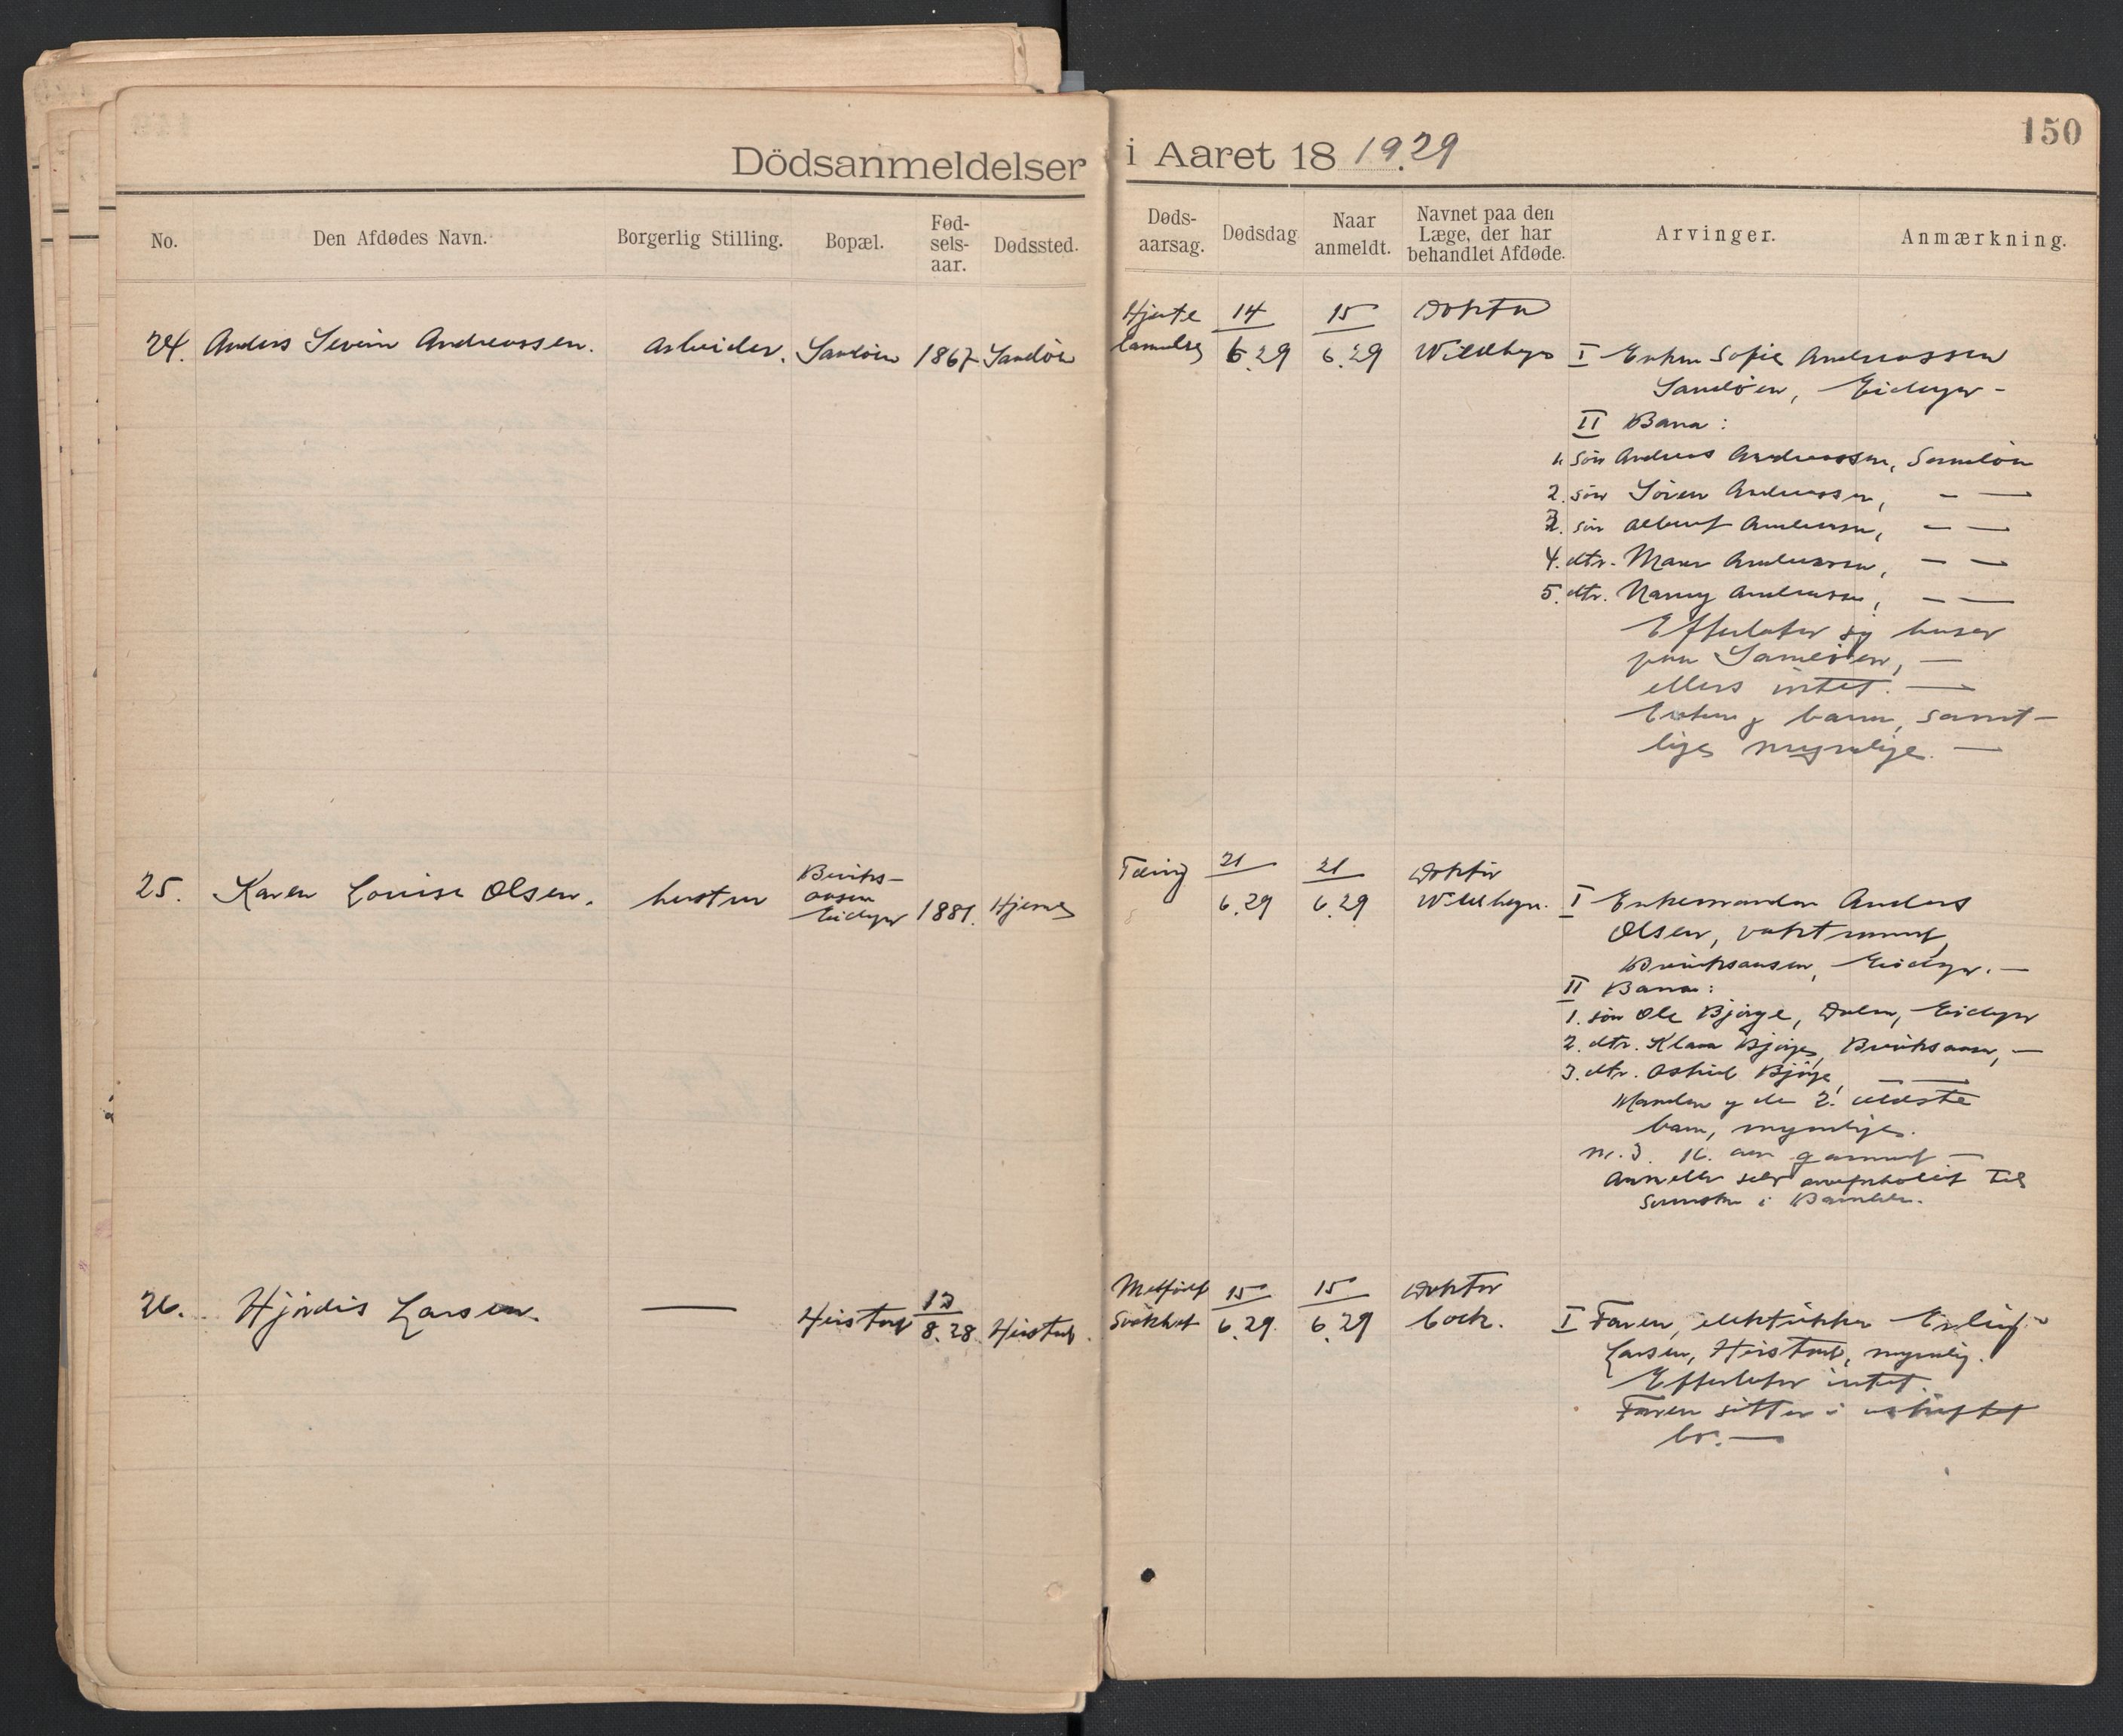 150
Dödsanmeldelser i Aaret 18 19.29
No. Den Afdødes Navn. Borgerlig Stilling. Bopæl. Fød-sels-aar. Dødssted. Døds-aarsag. Dødsdag Naar anmeldt. Navnet paa den Læge, der har behandlet Afdøde. Arvinger. Anmærkning.
Hjerte 14 15 Doktor
24. Anders Severin Andreassen. arbeider. Sandøen 1867 Sandøen lammelse 6.29 6.29 Wildhagen I Enken Sofie Andreassen
Sandöen, Eidanger -
II Barn:
1. sön Andreas Andreassen, Sandöen
2. sön Sören Andreassen, - -
3. sön Albert Andreassen, - -
4. dtr. Andreassen, - -
5. dtr. Nanny Andreassen, - -
Efterlater sig huser
paa Sandöen, -
ellers intet. -
Enken og barn, samt-
lige myndige. -
21 21 Doktor
25. Karen Louise Olsen. hustru Eidanger 1881. Hjemme Tæring 6.29 6.29 Wildhagen. I Enkemanden Anders
Olsen, vaktmand,
Eidanger. -
II Barn:
1. sön Ole Bjørge, Dalen, Eidanger
2. dtr. Klara Bjørge, -
3. dtr. Astrid Bjørge, - -
Manden og de 2 eldste
barn, myndige.
nr. 3. 16 aar gammel -
til
i Bamble.
15 15 Doktor
26. Hjördis Larsen. — Heistad 17/8.28. Heistad. Medfødt svakhet 6.29. 6.29 Cock. I Faren, Erling
Larsen, Heistad, myndig.
Efterlater intet.
Faren sitter i uskiftet
bo. -